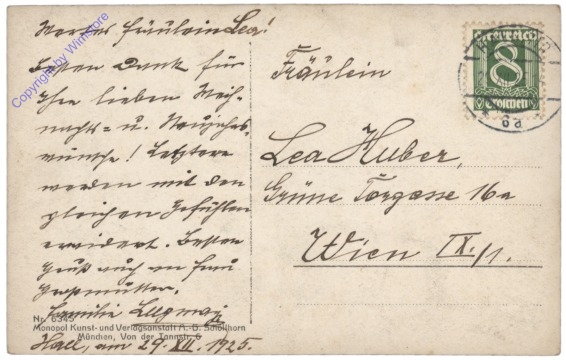 Wertes Fräulein Lea!
Besten Dank für
Ihre lieben Weih-
nachts- u. Neujahrs
wünsche! Letztere
werden mit den
gleichen Gefühlen
erwidert. Besten
Gruß auch an Frau
Großmutter.
Familie
Hall, am 29. XII. 1925.
Nr. 6345
Monopol Kunst- und Verlagsanstalt A.-G. Schöllhorn
München, Von der Tannstr. 6
Copyright by Winstore
Österreich
8
Groschen
Fräulein
Lea Huber,
Grüne Torgasse 16a
Wien IX./1.